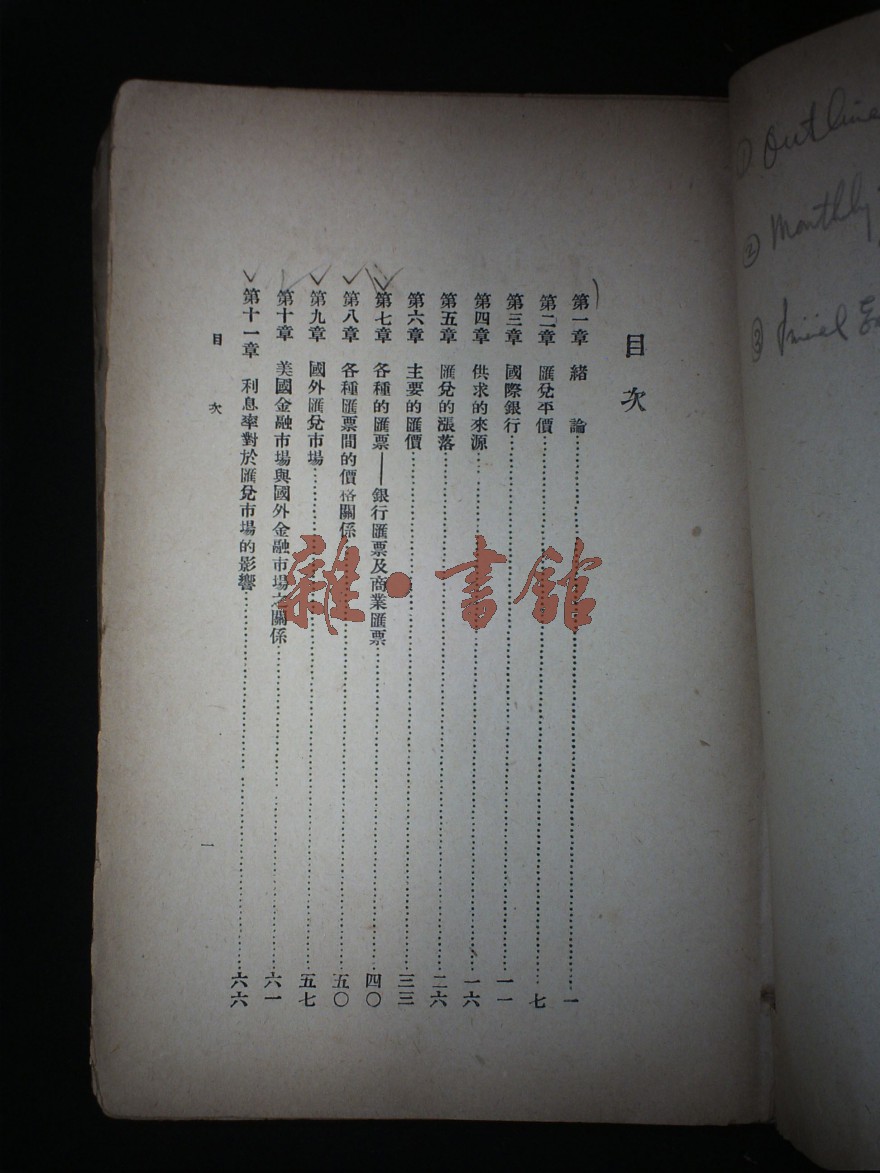 目次
第一章 緒論……一
第二章 匯兌平價……七
第三章 國際銀行……一一
第四章 供求的來源……一六
第五章 匯兌的漲落……二六
第六章 主要的匯價……三三
第七章 各種的匯票——銀行匯票及商業匯票……四〇
第八章 各種匯票間的價格關係……五〇
第九章 國外匯兌市場……五七
第十章 美國金融市場與國外金融市場之關係……六一
第十一章 利息率對於匯兌市場的影響……六六
目次 一
雜·書館
① Outline
② Monthly
③